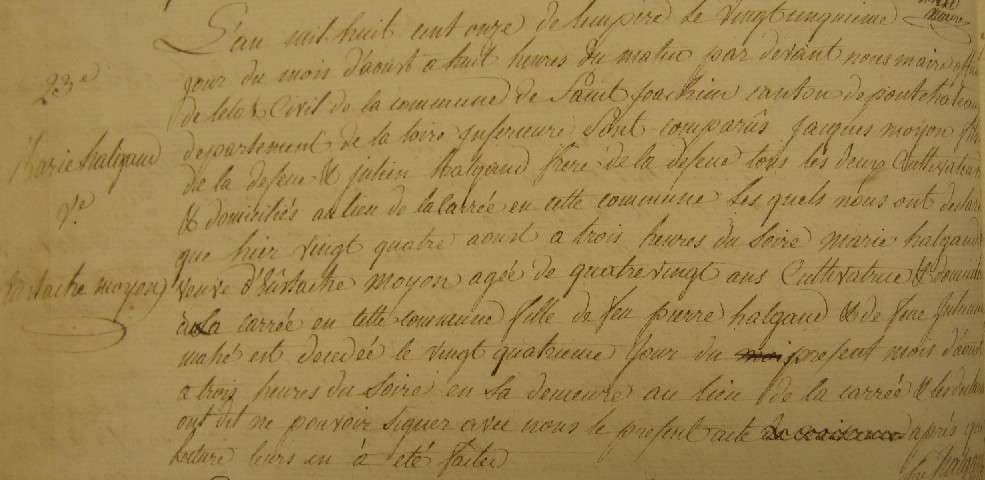 L'an mil huit cent onze de l'empire le vingt cinquieme
23e
jour du mois d'aoust a huit heures du matin par devant nous maire
de letat Civil de la commune de Saint Joachim canton de pontchateau
departement de la loire inferieure sont comparûs Jacques moyon fils
Marie halgand
de la defeue & julien halgand frère de la defeue tous les deux Cultivateurs
Ve
& domiciliés au lieu de la carrée en cette commune les quels nous ont declaré
que hier vingt quatre aoust a trois heures du soire marie halgand
Eustache moyon
veuve d'Eustache moyon agée de quatre vingt ans Cultivatrice &
a la carrée en cette commune fille de feu pierre halgand & de feue Julienne
mahé est decedée le vingt quatrieme jour du moi present mois d'aoust
a trois heures du soire en sa demeure au lieu de la carrée &
ont dit ne pouvoir signer avec nous le present acte de naissance après que
lecture leurs en à été faite
halgand